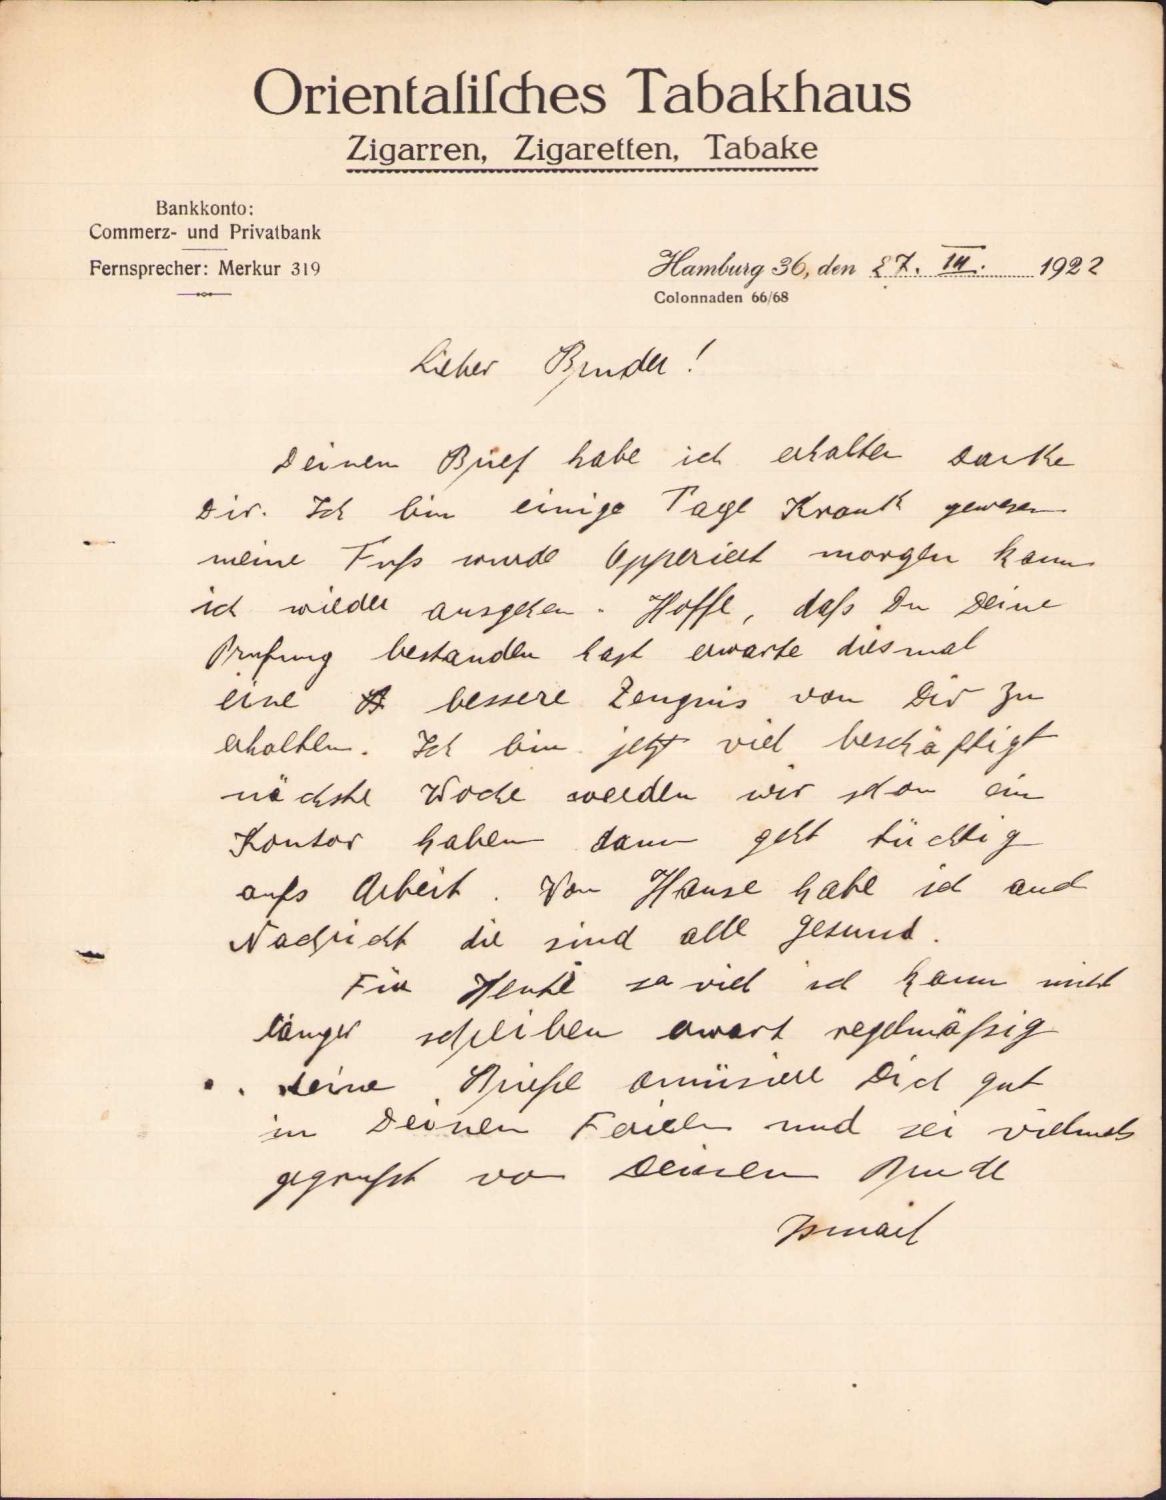 Orientaliſches Tabakhaus
Zigarren, Zigaretten, Tabake
Bankkonto:
Commerz- und Privatbank
Fernsprecher: Merkur 319
Hamburg 36, den 27. III. 1922
Colonnaden 66/68
Lieber Bruder!
Deinen Brief habe ich erhalten Danke
Dir. Ich bin einige Tage Krank gewesen
meine Fuſs wurde Opperiert morgen kann
ich wieder ausgehen. Hoffe, daſs Du Deine
Prufung bestanden hast erwarte diesmal
eine bessere Zeugnis von Dir zu
erhalten. Ich bin jetzt viel beschäftigt
nächste Woche werden wir schon ein
Kontor haben dann geht tüchtig
aufs Arbeit. Von Hause habe ich auch
Nachricht die sind alle Gesund.
Für Heute so viel ich kann nicht
länger schreiben erwart regelmäſsig
deine Briefe amüsiere Dich gut
in Deinen Ferien und sei vielmals
gegruſst von Deinen Bruder
Ismail